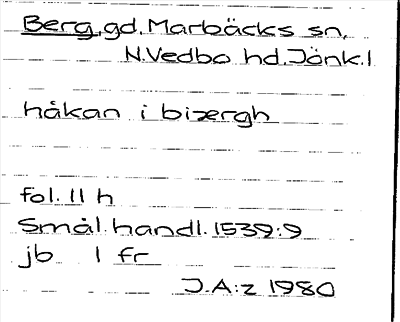 Berg, gd. Marbäcks sn,
N. Vedbo hd. Jönk. l
håkan i bizergh
fol. 11 h
Smål. handl. 1539:9
jb 1 fr
J.A:z 1980